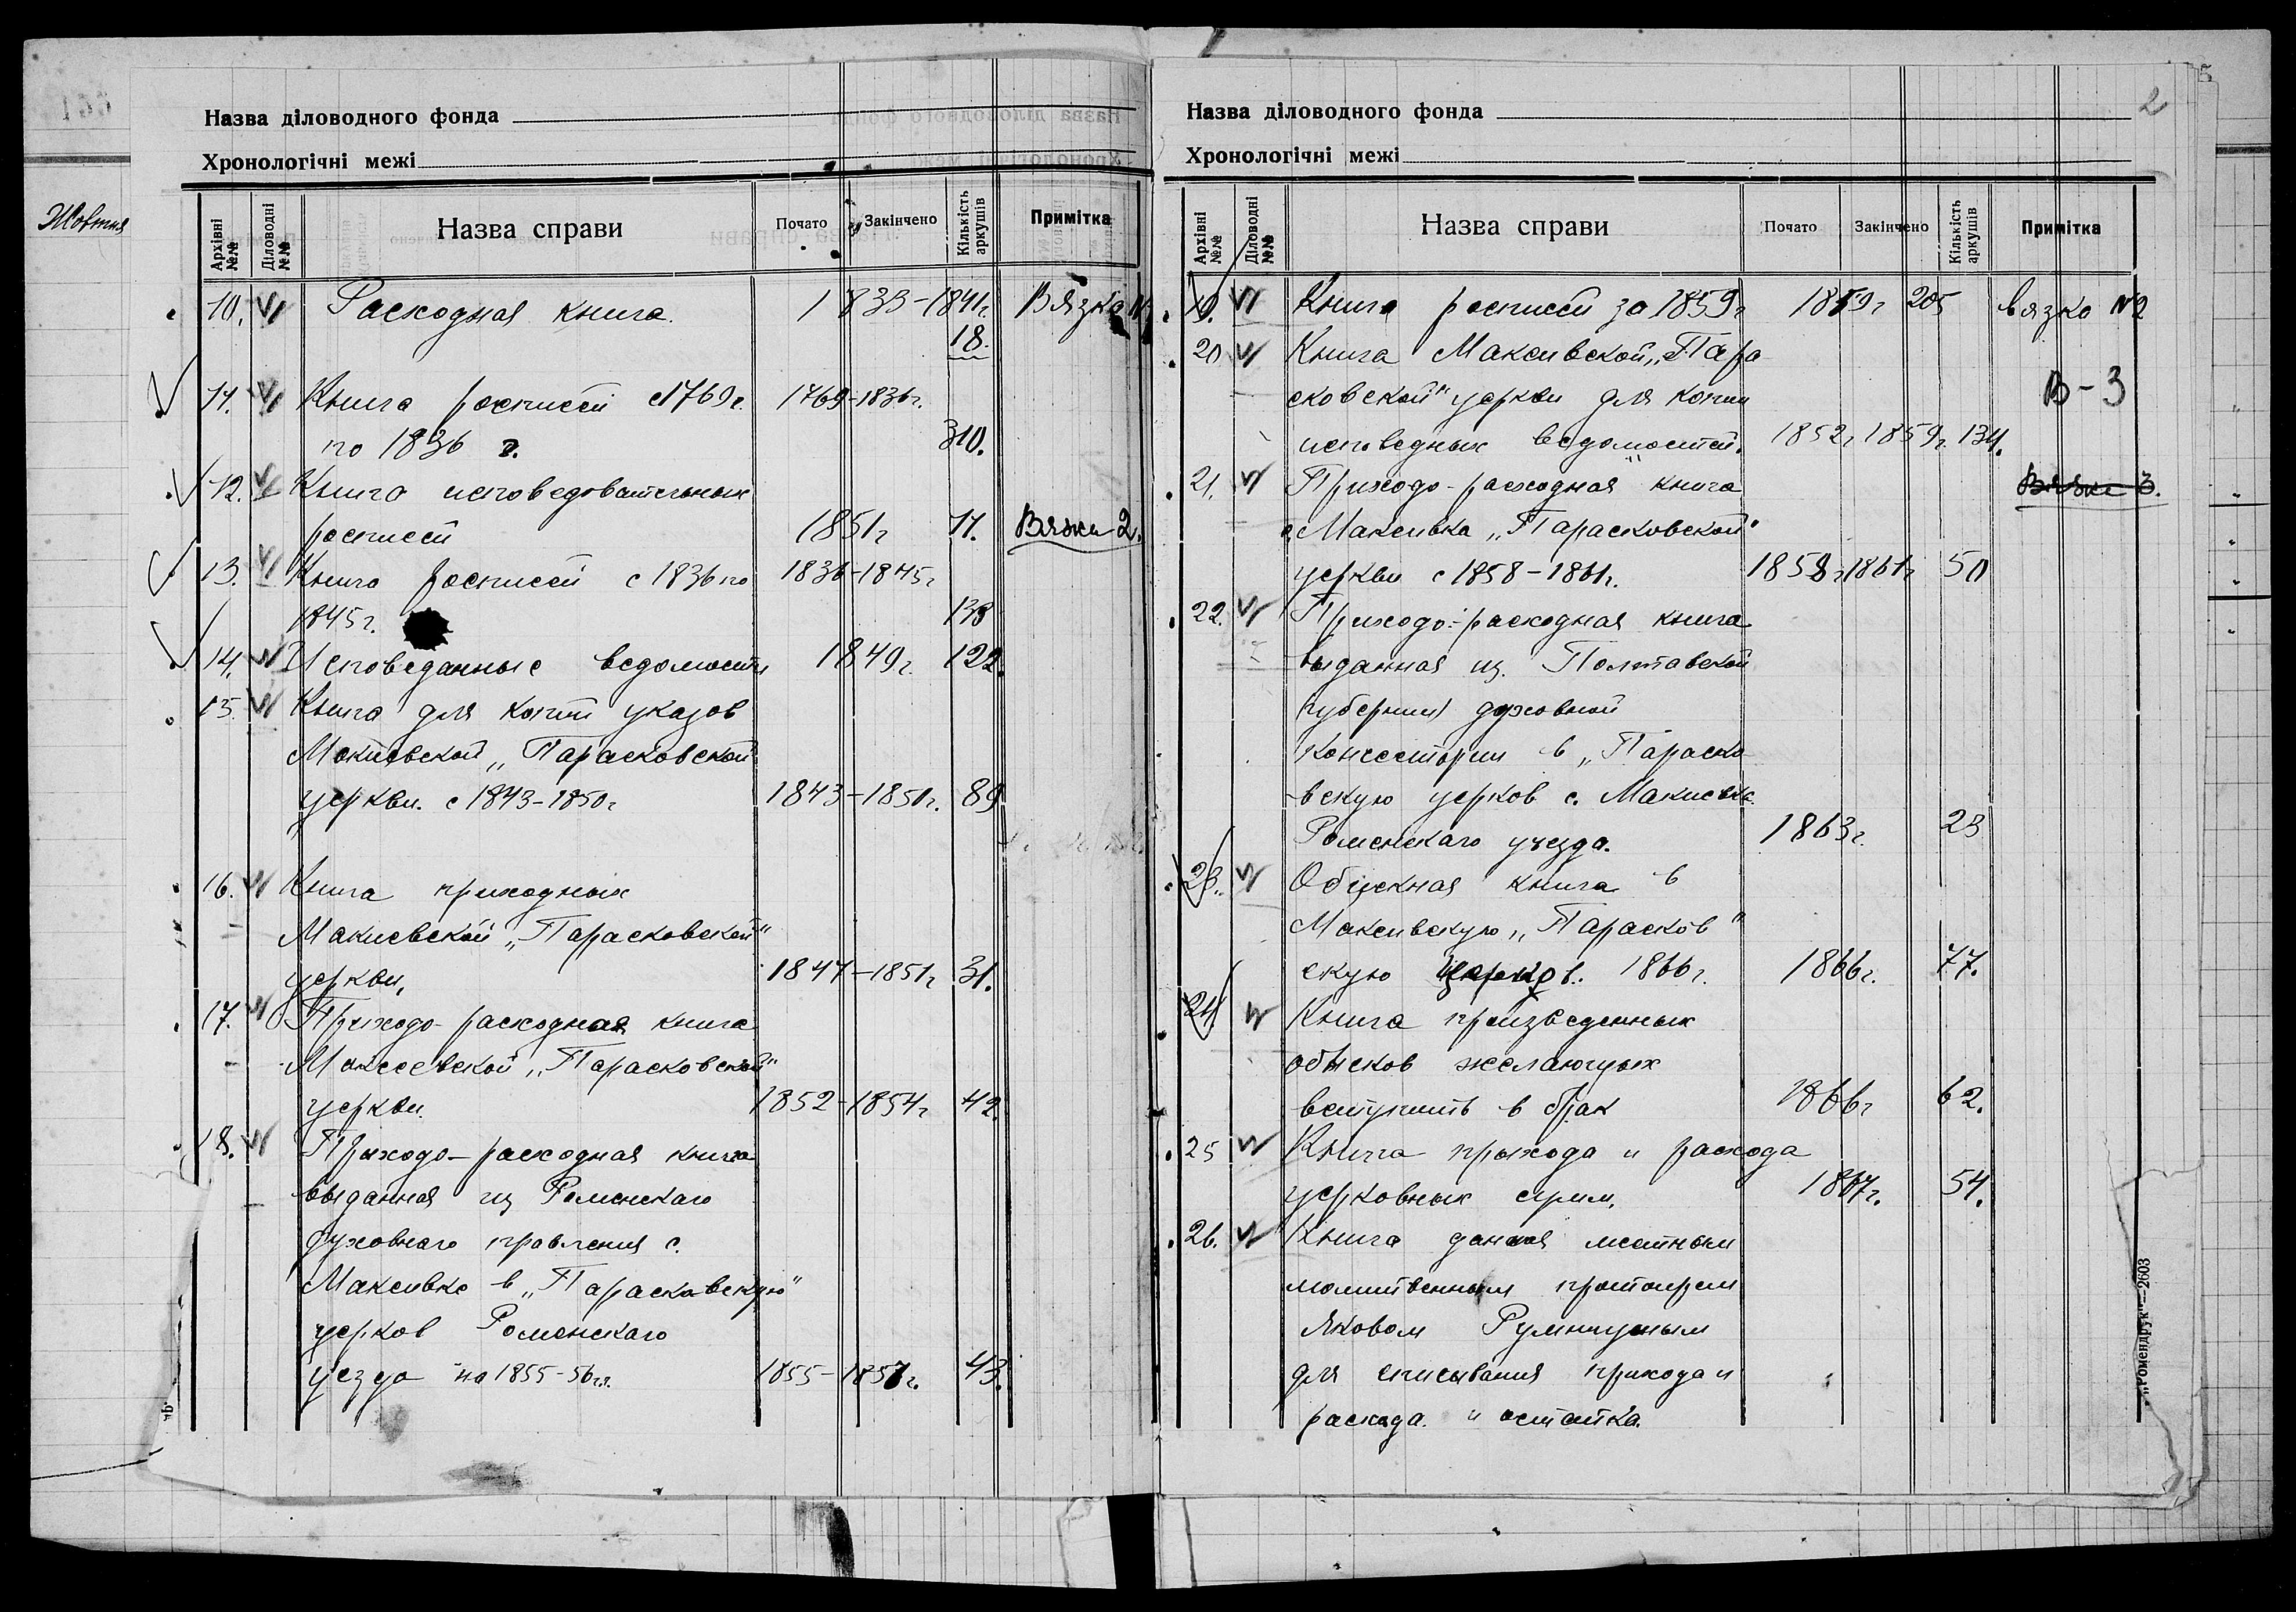 Жовтня
Назва діловодного фонда
Хронологічні межі
Архівні №№ Діловодні №№ Назва справи Почато Закінчено Кількість аркушів Примітка
10. VI Расходная книга. 1839-1841г. Вязка
18.
11. VI Книга росписей с1769г. 1769-1836г.
по 1836 г. 310.
12. VI Книга исповедовательных
росписей 1851г 11. Вязки 2.
13. VI Книга росписей с 1836 по 1836-1845г
1845г. 138
14. VI Исповеданные ведомости 1849г. 122.
15. VI Книга для копий указов
Макиевской „Парасковской
церкви. с 1843-1850г 1843-1850г. 89
16. VI Книга приходных
Макиевской „Парасковской"
церкви, 1847-1851г 31.
17. VI Приходо-расходная книга
Макеевской „Парасковской"
церкви. 1852-1854г 42.
18. VI Приходо-расходная книга
выданная из Роменскаго
духовнаго правления с.
Макеивко в „Парасковскую"
церков Роменскаго
уезда на 1855-56г.г. 1855-1857г. 43.
2
Назва діловодного фонда
Хронологічні межі
Архівні №№ Діловодні №№ Назва справи Почато Закінчено Кількість аркушів Примітка
19. VI Книга росписей за 1859г 1859г 205 Вязко №2
20 VI Книга Макеивской „Пара
сковской" церкви для копии В-3
исповедных ведомостей. 1852г 1859г. 134.
21. VI Приходо-расходная книга Вязки 3.
с. Макеивка „Парасковской"
церкви с 1858-1861г. 1858г 1861г 50
22. VI Приходо-расходная книга
выданная из. Полтавской
губернии духовной
консестории в „Параско
вскую церков с. Макиевка
Роменскаго уезда. 1863г. 23
23. VI Обискная книга в
Макеивскую „Парасков"
скую церков. 1866г. 1866г. 77.
24. VI Книга произведенных
обысков желающих
вступить в брак 1866г 62.
25 VI Книга прихода и расхода
церковных сумм. 1867г. 54.
26. VI Книга данная местным
молитвенным протоиреем
Яковом
для списывания прихода и
расхода. и остатка.
„Ромендрук"—2603